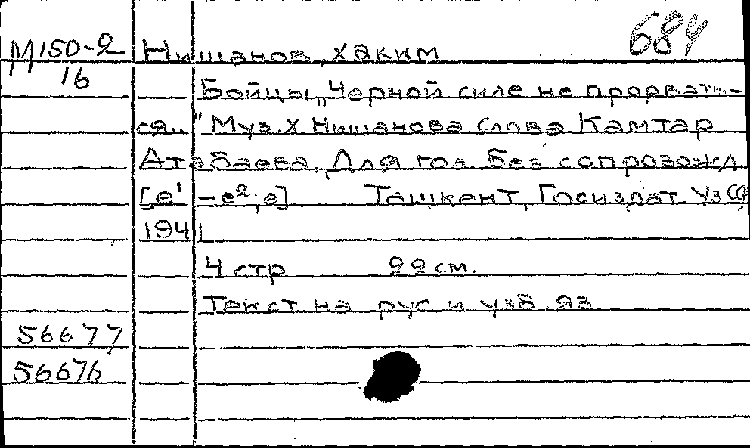 684
М150-2 Нишанов, Хаким
16
Бойцы, „Черной силе не прорвать-
ся.." Муз. Х Нишанова слова Камтар
Атабаева. Для гол. без сопровожд.
[e¹ -e²; e] Ташкент, Госиздат УзССР
1941
4 стр 22 см.
Текст на рус и узб. яз
56677
56676